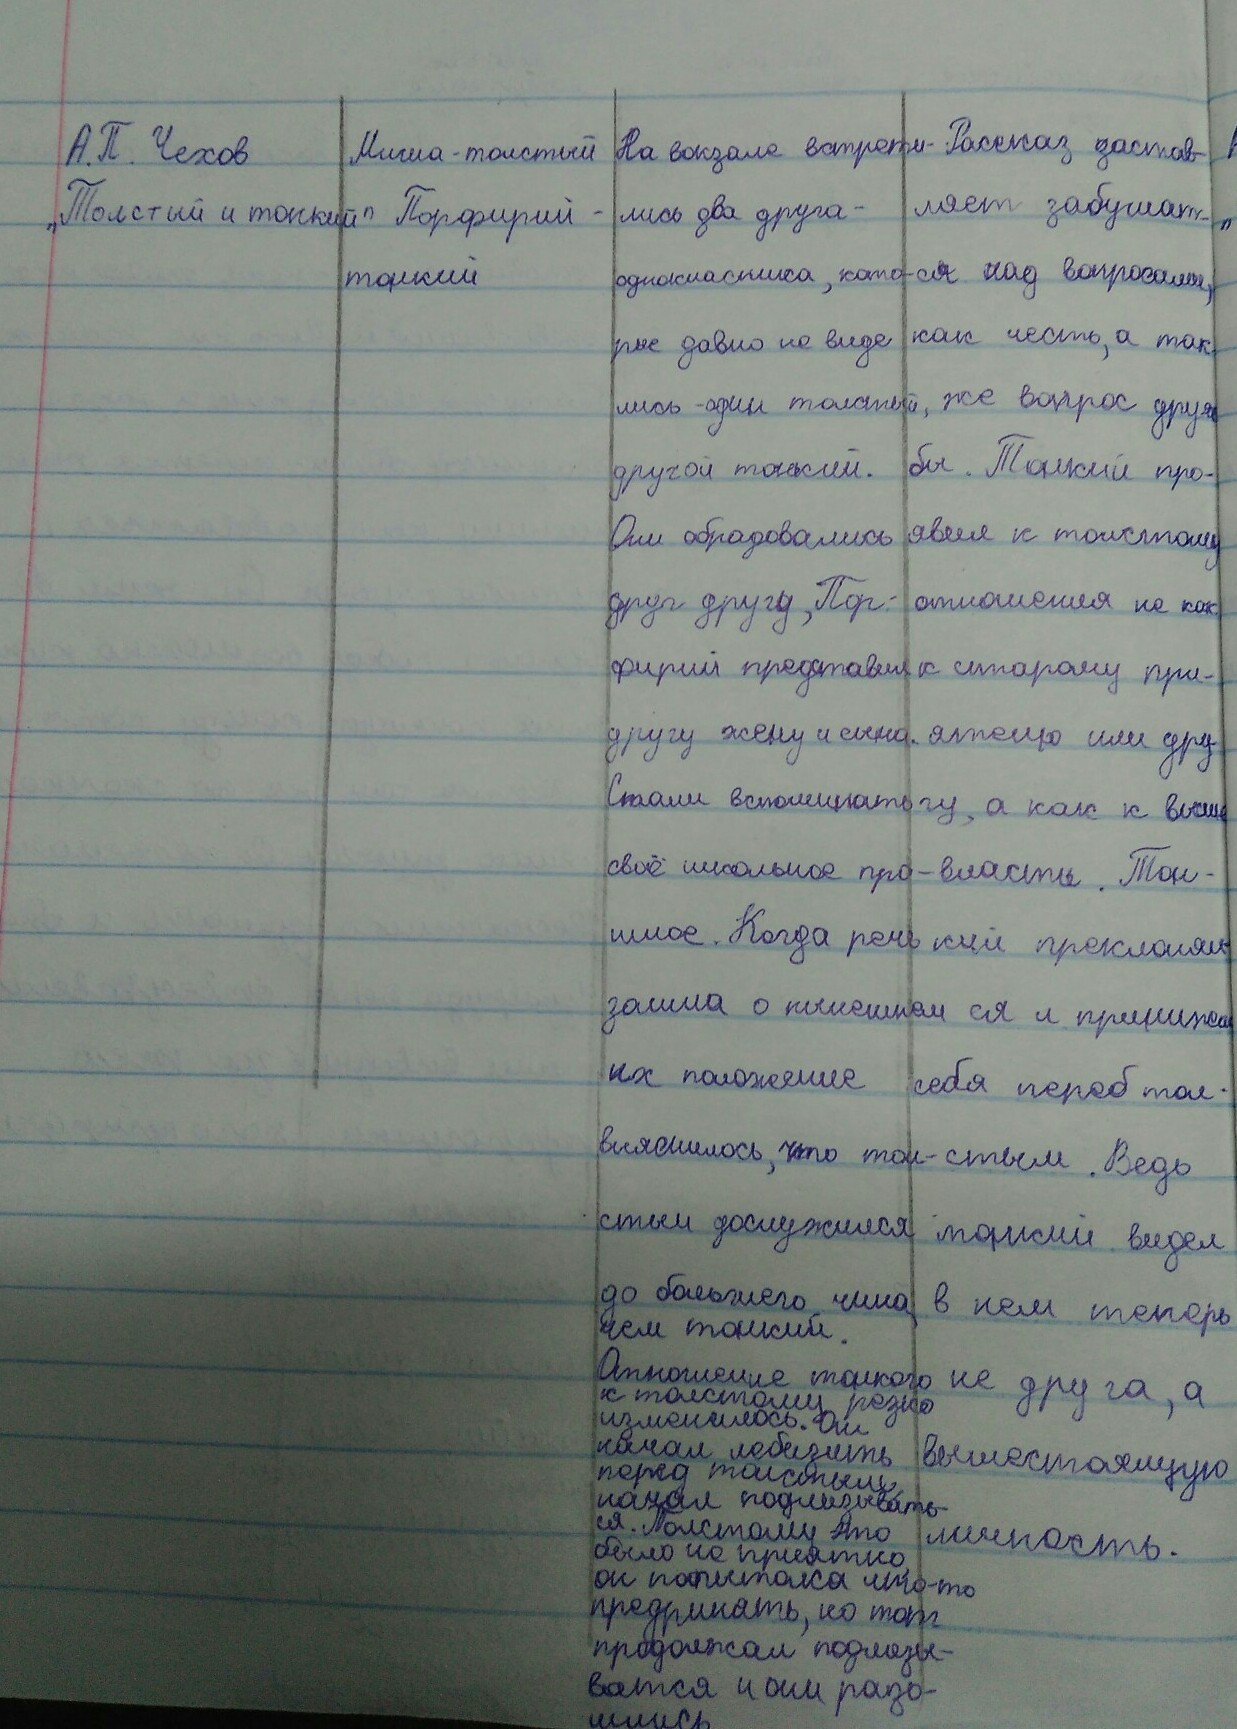 А.П. Чехов
„Толстий и тонкий"
Миша-толстый
Порфирий -
тонкий
На вокзале встрети-
лись два друга-
однокласника, кото-
рые давно не виде
лись -один толстый,
другой тонкий.
Они обрадовались
друг другу, Пор-
фирий представил
другу жену и сына.
Стали вспоминать
своё школьное про-
шлое. Когда речь
зашла о нынешнем
их положение
выяснилось, что тол-
стый дослужился
до большего чина,
чем тонкий.
Отношение тонкого
к толстому резко
изменилось. Он
начал лебезить
перед толстым,
начал подлизывать-
ся. Толстому это
было не приятно,
он попытолса что-то
предринять, но тот
продолжал подлизы-
ватся и они разо-
шлись
Рассказ застав-
ляет забушат-
ся над вопросами,
как честь, а так
же вопрос друж
бы. Тонкий про-
явил к толстому
отношения не как
к старому при-
ятелю или дру
гу, а как к высше
власты. Тон-
кий преклонял
ся и принижал
себя перед тол-
стым. Ведь
тонкий видел
в нем теперь
не друга, а
вышестоящую
личность.